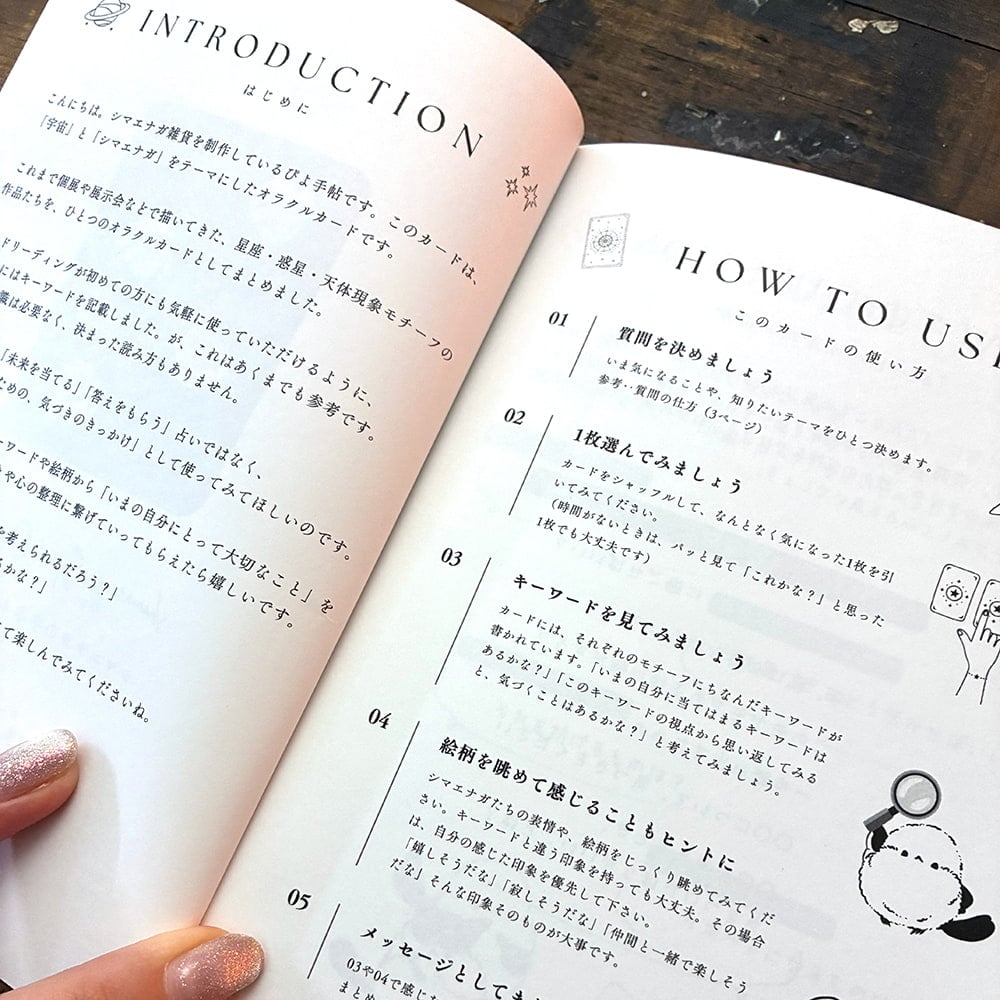 INTRODUCTION
はじめに
こんにちは。シマエナガ雑貨を制作しているぴよ手帖です。このカードは、
「宇宙」と「シマエナガ」をテーマにしたオラクルカードです。
これまで個展や展示会などで描いてきた、星座・惑星・天体現象モチーフの
作品たちを、ひとつのオラクルカードとしてまとめました。
ドリーディングが初めての方にも気軽に使っていただけるように、
にはキーワードを記載しました。が、これはあくまでも参考です。
識は必要なく、決まった読み方もありません。
「未来を当てる」「答えをもらう」占いではなく、
ための、気づきのきっかけ」として使ってみてほしいのです。
ワードや絵柄から「いまの自分にとって大切なこと」を
や心の整理に繋げていってもらえたら嬉しいです。
を考えられるだろう?」
るかな?」
て楽しんでみてくださいね。
HOW TO USE
このカードの使い方
01
質問を決めましょう
いま気になることや、知りたいテーマをひとつ決めます。
参考:質問の仕方(3ページ)
02
1枚選んでみましょう
カードをシャッフルして、なんとなく気になった1枚を引
いてみてください。
(時間がないときは、パッと見て「これかな?」と思った
1枚でも大丈夫です)
03
キーワードを見てみましょう
カードには、それぞれのモチーフにちなんだキーワードが
書かれています。「いまの自分に当てはまるキーワードは
あるかな?」「このキーワードの視点から思い返してみる
と、気づくことはあるかな?」と考えてみましょう。
04
絵柄を眺めて感じることもヒントに
シマエナガたちの表情や、絵柄をじっくり眺めてみてくだ
さい。キーワードと違う印象を持っても大丈夫。その場合
は、自分の感じた印象を優先して下さい。
「嬉しそうだな」「寂しそうだな」「仲間と一緒で楽しそう
だな」そんな印象そのものが大事です。
05
メッセージとしても
03や04で感じた
まとめ